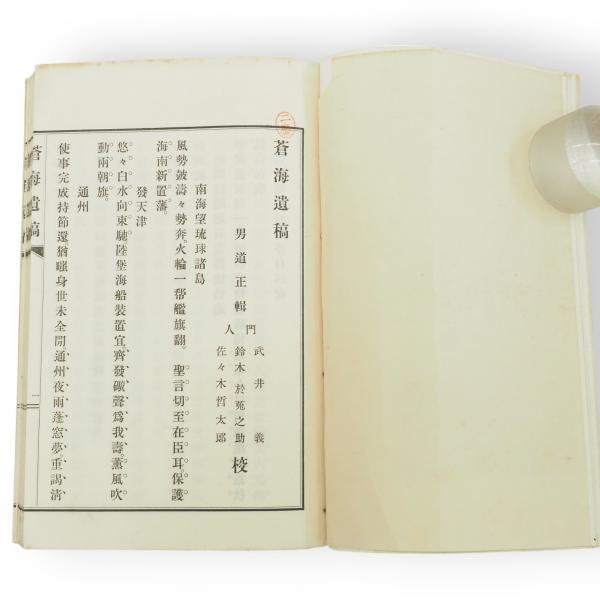 蒼海遺稿
男道正輯
門人
武井義
鈴木於菟之助
佐々木哲太郎
校
南海望琉球諸島
風勢皷濤々勢奔。火輪一帮艦旗翻。聖言切至在臣耳。保護
海南新置藩。
發天津
悠々白水向東馳。陸堡海船裝置宜。齊發礮聲爲我壽。薫風吹
動兩朝旗。
通州
使事完成持節還。猶嗤身世未全閒。通州夜雨蓬窓夢。重謁淸
蒼海遺稿
一